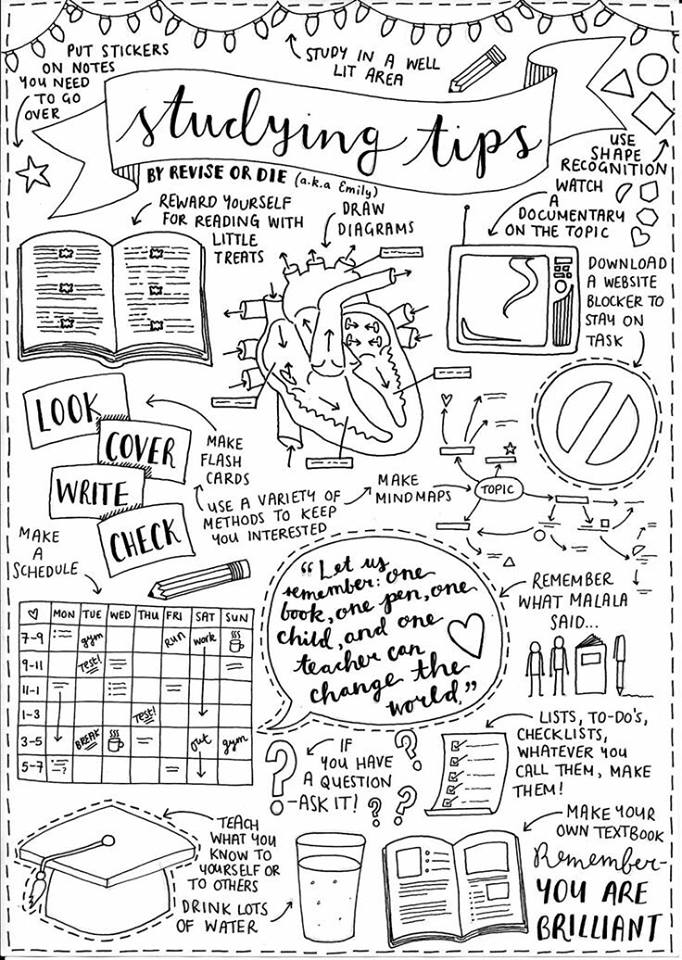 PUT STICKERS
ON NOTES
YOU NEED
TO GO
OVER
STUDY IN A WELL
LIT AREA
studying tips
BY REVISE OR DIE (a.k.a Emily)
USE
SHAPE
RECOGNITION
REWARD YOURSELF
FOR READING WITH
LITTLE
TREATS
DRAW
DIAGRAMS
WATCH
A
DOCUMENTARY
ON THE TOPIC
DOWNLOAD
A WEBSITE
BLOCKER TO
STAY ON
TASK
LOOK
COVER
WRITE
CHECK
MAKE
FLASH
CARDS
USE A VARIETY OF
METHODS TO KEEP
YOU INTERESTED
MAKE
MINDMAPS
TOPIC
MAKE
A
SCHEDULE
MON TUE WED THU FRI SAT SUN
7-9 gym run work
9-11 Test!
11-1
1-3 Test!
3-5 BREAK out gym
5-7 ?
"Let us
remember: one
book, one pen, one
child, and one
teacher can
change the
world."
REMEMBER
WHAT MALALA
SAID...
IF
YOU HAVE
A QUESTION
-ASK IT!
LISTS, TO-DO'S,
CHECKLISTS,
WHATEVER YOU
CALL THEM, MAKE
THEM!
TEACH
WHAT YOU
KNOW TO
YOURSELF OR
TO OTHERS
DRINK LOTS
OF WATER
MAKE YOUR
OWN TEXTBOOK
Remember-
YOU ARE
BRILLIANT